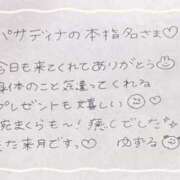 パサディナの本指名さま♡
今日も来てくれてありがとう☺
身体のこと気遣ってくれる
プレゼントも嬉しい☺♡
腕まくらも〜!癒しでした
また来月ですっ♡ ゆずる